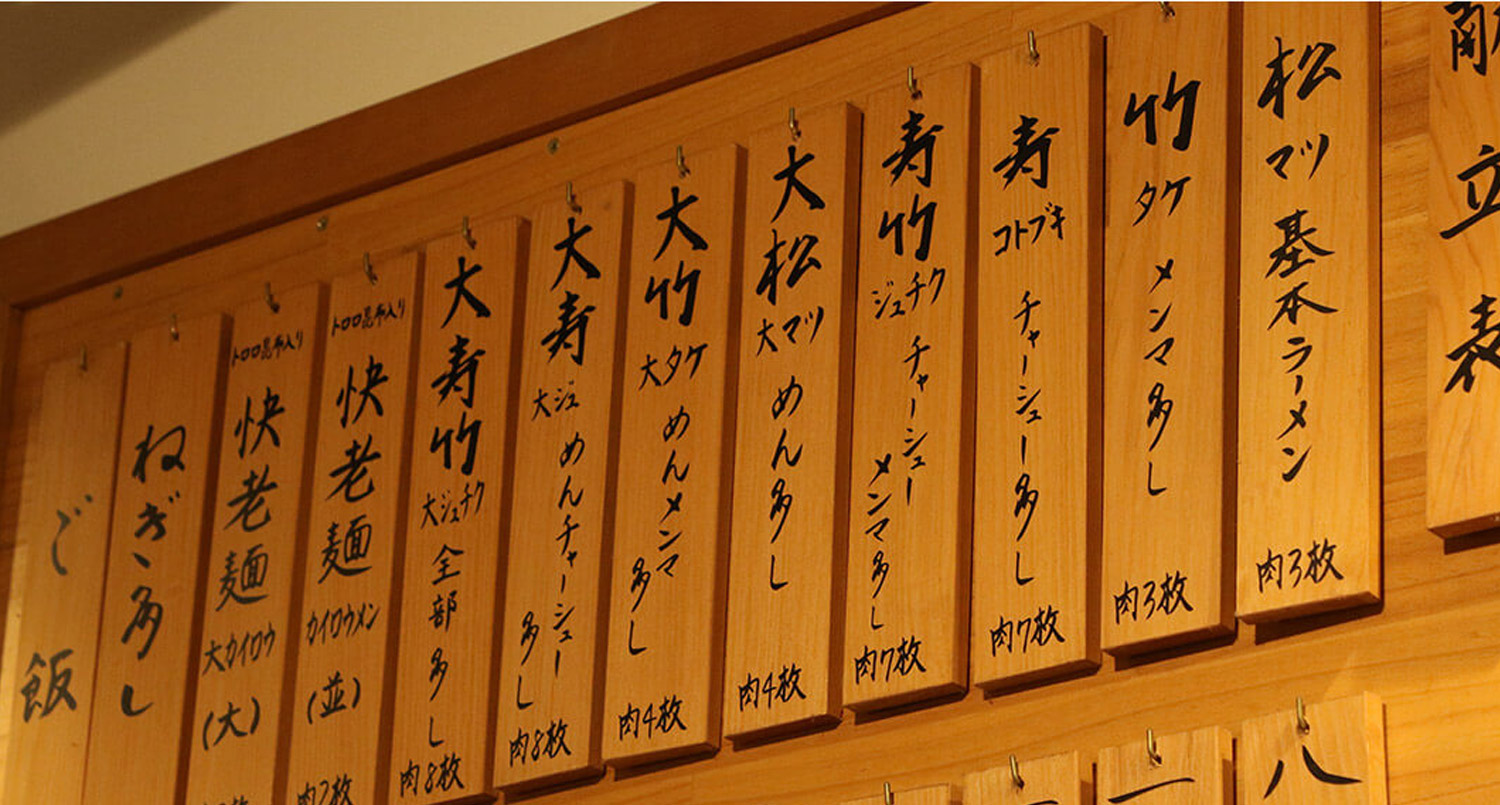 献立表
松 マツ 基本ラーメン 肉3枚
竹 タケ メンマ多し 肉3枚
寿 コトブキ チャーシュー多し 肉7枚
寿竹 ジュチク チャーシュー
メンマ多し 肉7枚
大松 大マツ めん多し 肉4枚
大竹 大タケ めんメンマ
多し 肉4枚
大寿 大ジュ めんチャーシュー
多し 肉8枚
大寿竹 大ジュチク 全部多し 肉8枚
トロロ昆布入り
快老麺 カイロウメン (並) 肉7枚
トロロ昆布入り
快老麺 大カイロウ (大)
ねぎ多し
ご飯
八
一